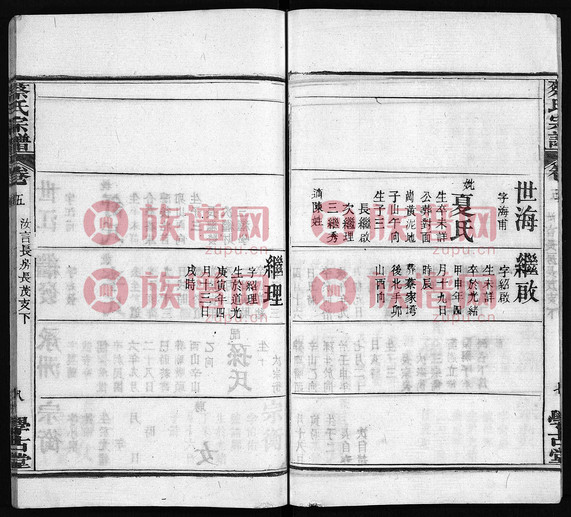 蔡氏宗譜
學古堂
世海
字海甫
妣夏氏
生卒未詳
公葬對面
崗黃泥地
子山午向
生子三
長繼啟
次繼理
三繼秀
適陳姓
繼啟
字紹啟
生未詳
卒於光緒
甲申年四
月十九日
時辰
葬蔡家塆
後北手卯
山酉向
繼理
字紹理
生於道光
庚寅年四
月十三日
戌時
蔡氏宗譜
卷五
汝言長房長茂支下
學古堂
族谱网
zupu.cn